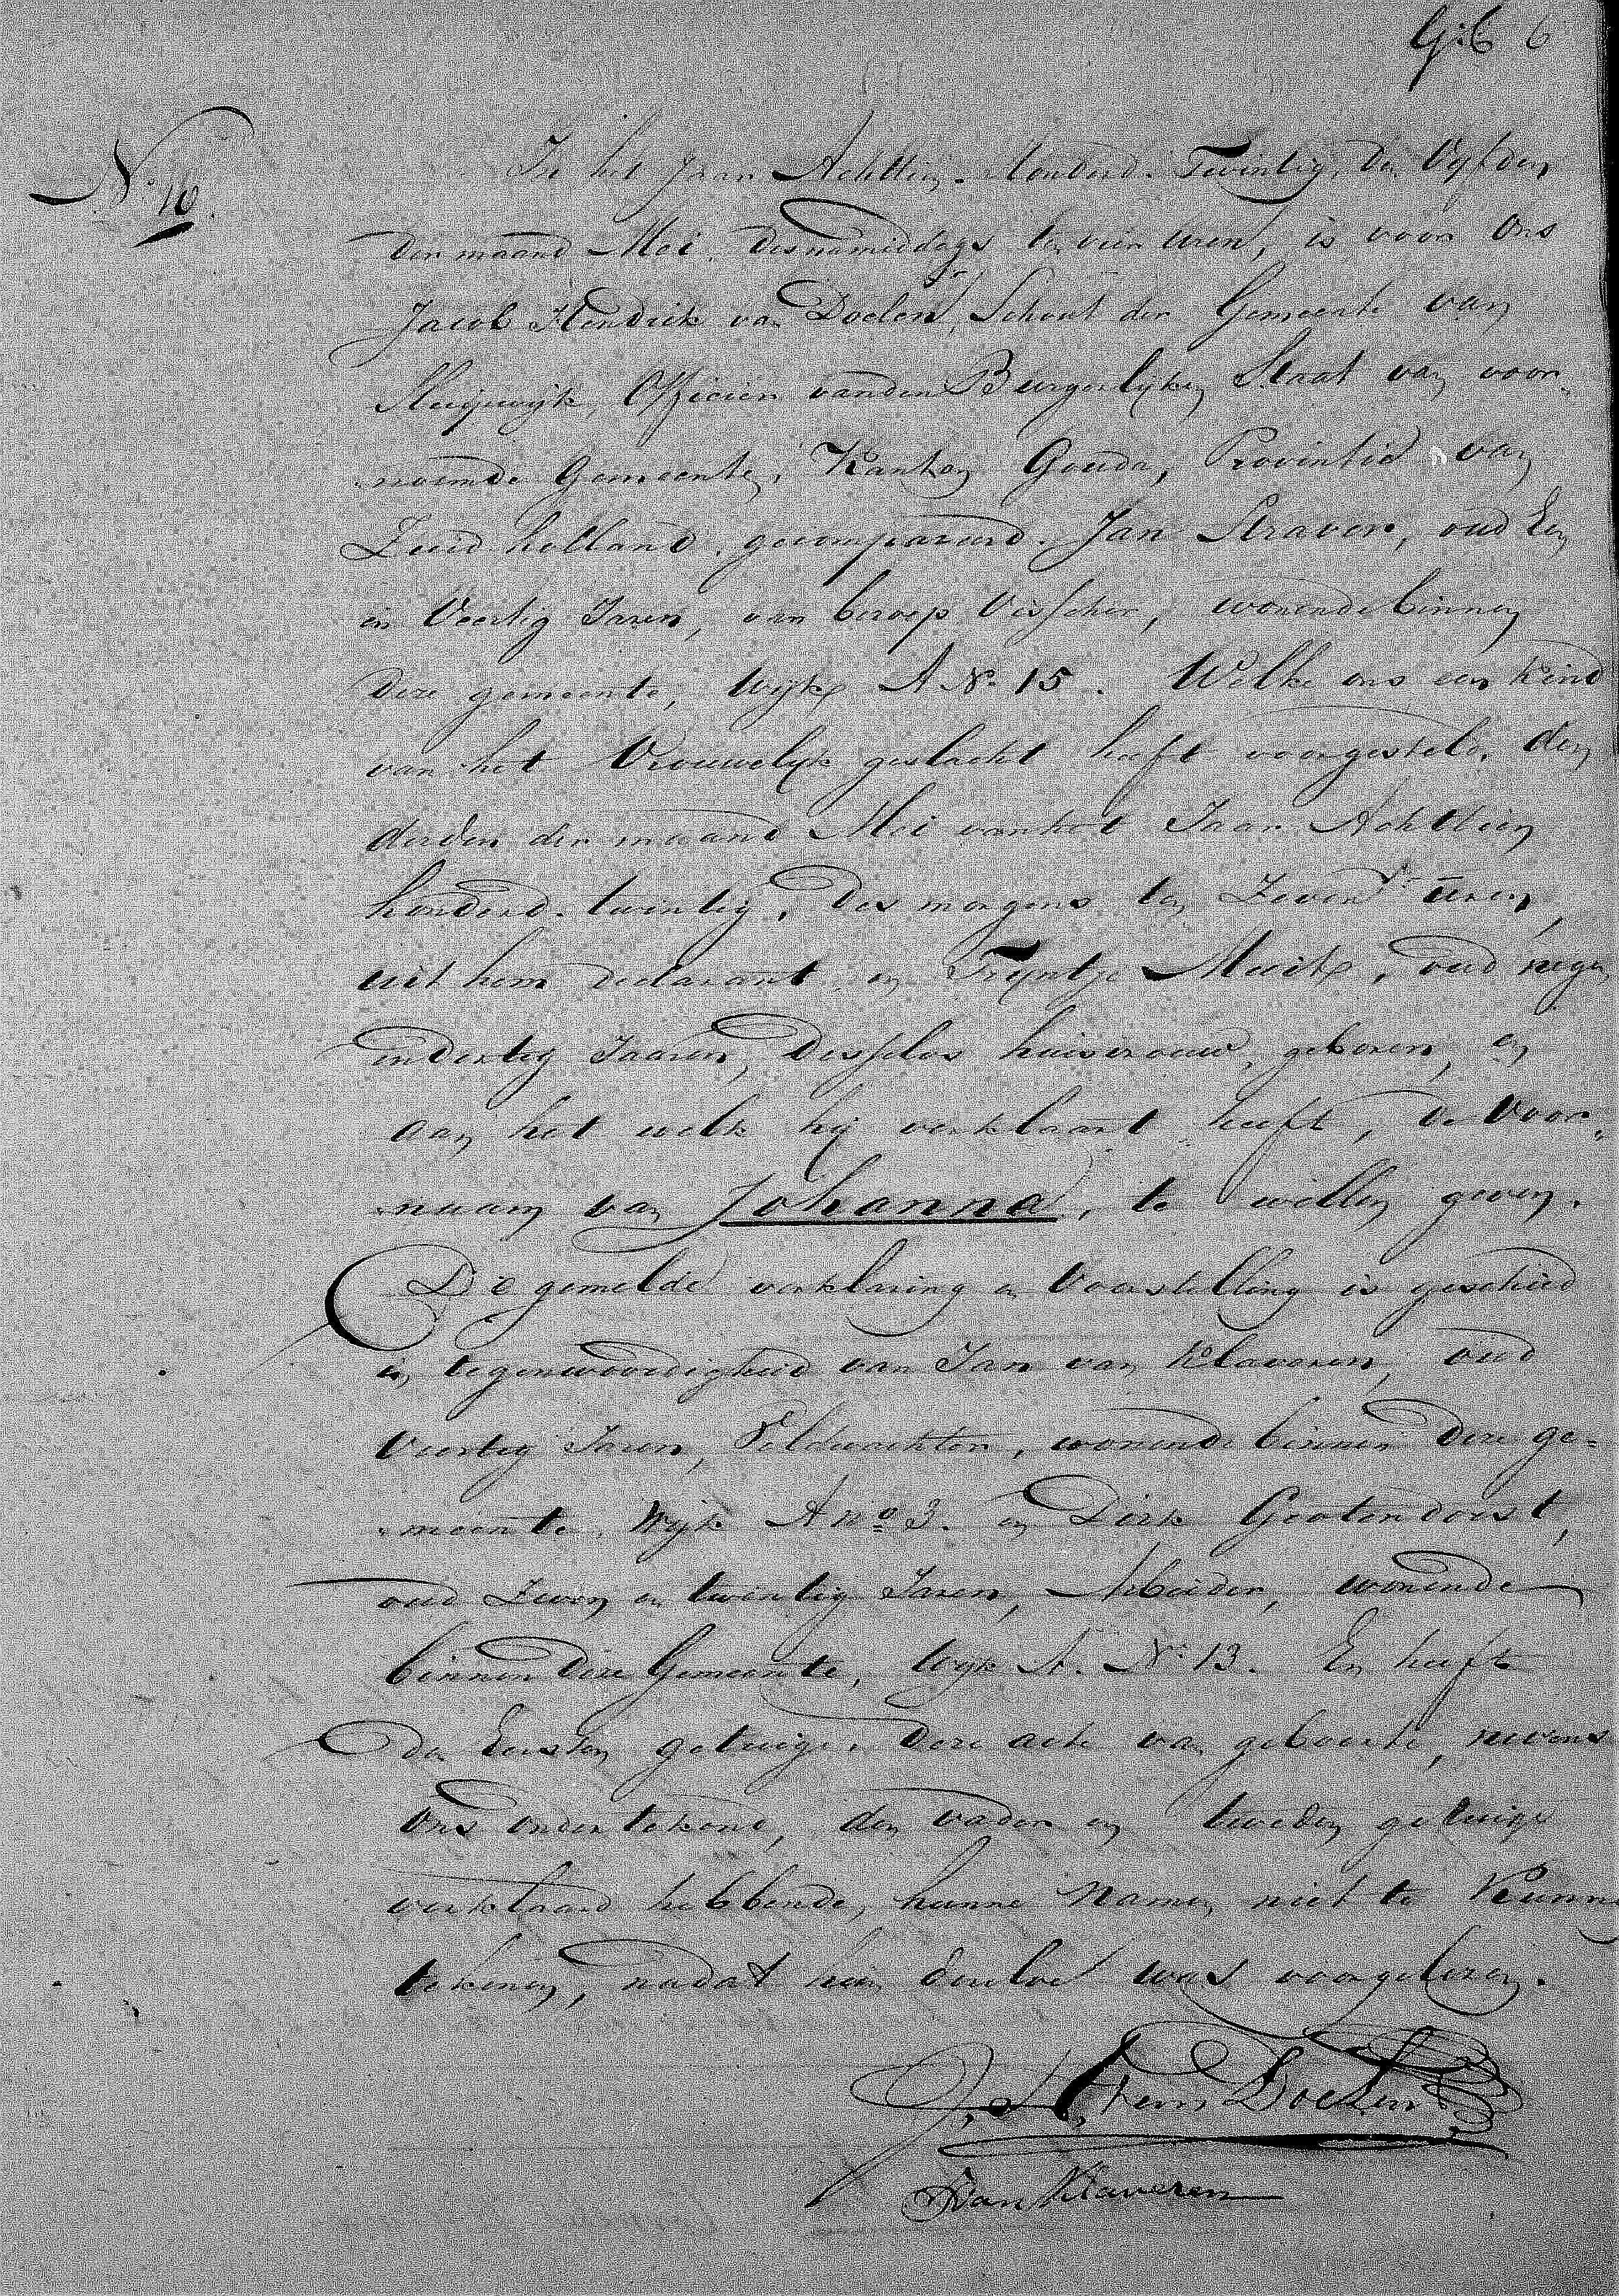 G: 6 6
N: 10.
In het Jaar Achttien-Honderd-Twintig, den Vyfden
der maand Mei, des namiddags ten vier uren, is voor Ons
Jacob Hendrik van Doelen, Schout der Gemeente van
Sluipwijk, Officier van den Burgerlyken Staat van voor-
noemde Gemeente, Kanton Gouda, Provintie van
Zuid holland, gecompareerd. Jan Straver, oud Een
en Veertig Jaren, van beroep Visscher, wonende binnen
deze gemeente, Wijk A No. 15. Welke ons een kind
van het Vrouwelyk geslacht heeft voorgesteld, den
derden der maand Mei van het Jaar Achttien
honderd-twintig, des morgens ten Zeven uren,
uit hem declarant en Tryntje Muilk, oud negen
en dertig Jaaren, deszelvs huisvrouw, geboren, en
aan het welk hij verklaart heeft, de Voor-
naam van Johanna, te willen geven.
Die gemelde verklaring en Voorstelling is geschied
in tegenwoordigheid van Jan van Klaveren, oud
Veertig Jaren, Veldwachter, wonende binnen deze ge-
meente, Wijk A no 3. en Dirk Grotendorst,
oud Zeven en twintig Jaren, Arbeider, wonende
binnen deze Gemeente, Wyk A. No: 13. En heeft
den Eersten getuige, deze acte van geboorte, nevens
Ons Ondertekend, den vader en tweeden getuige
verklaard hebbende, hunne Namen niet te Kunnen
tekenen, nadat hun dezelve was voorgelezen.
J. H. van Doelen
J van Klaveren